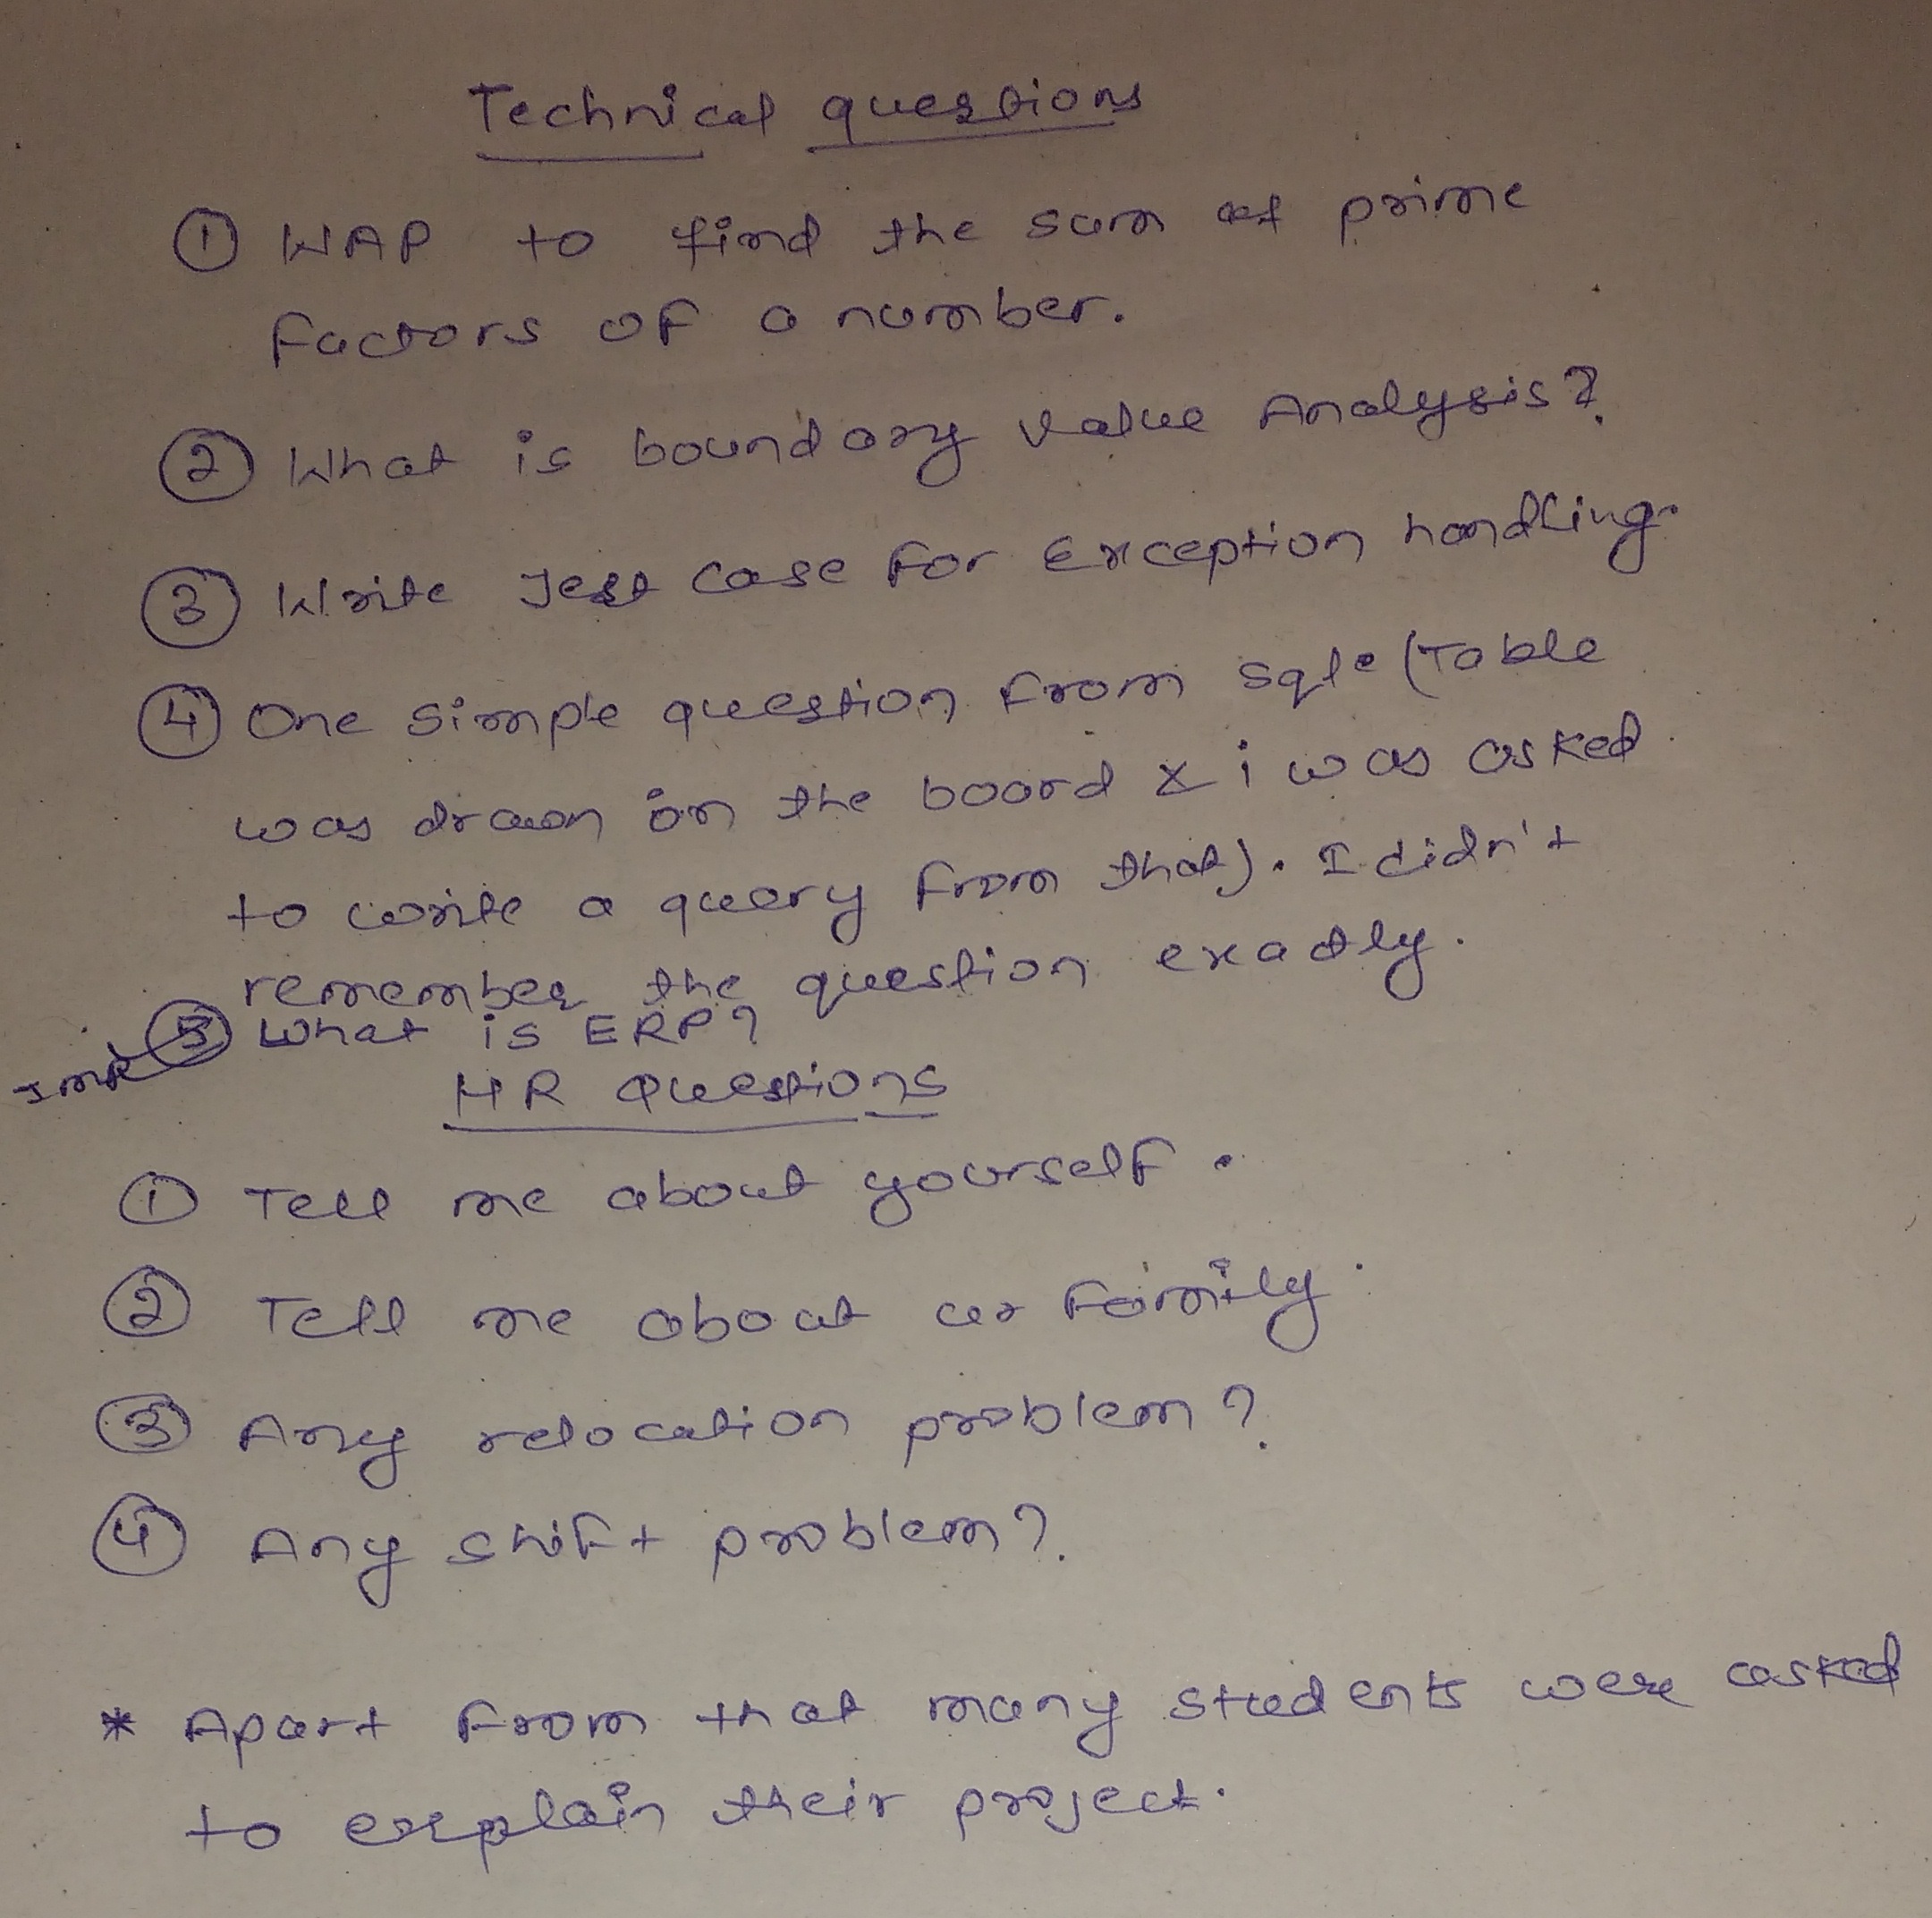 Technical questions
① WAP to find the sum of prime
factors of a number.
② What is boundary value Analysis?
③ Write Test case for Exception handling.
④ One simple question from sql. (Table
was drawn on the board & i was asked
to write a query from that). I didn't
remember the question exactly.
Imp ⑤ What is ERP?
HR Questions
① Tell me about yourself.
② Tell me about ur family.
③ Any relocation problem?
④ Any shift problem?
* Apart from that many students were asked
to explain their project.